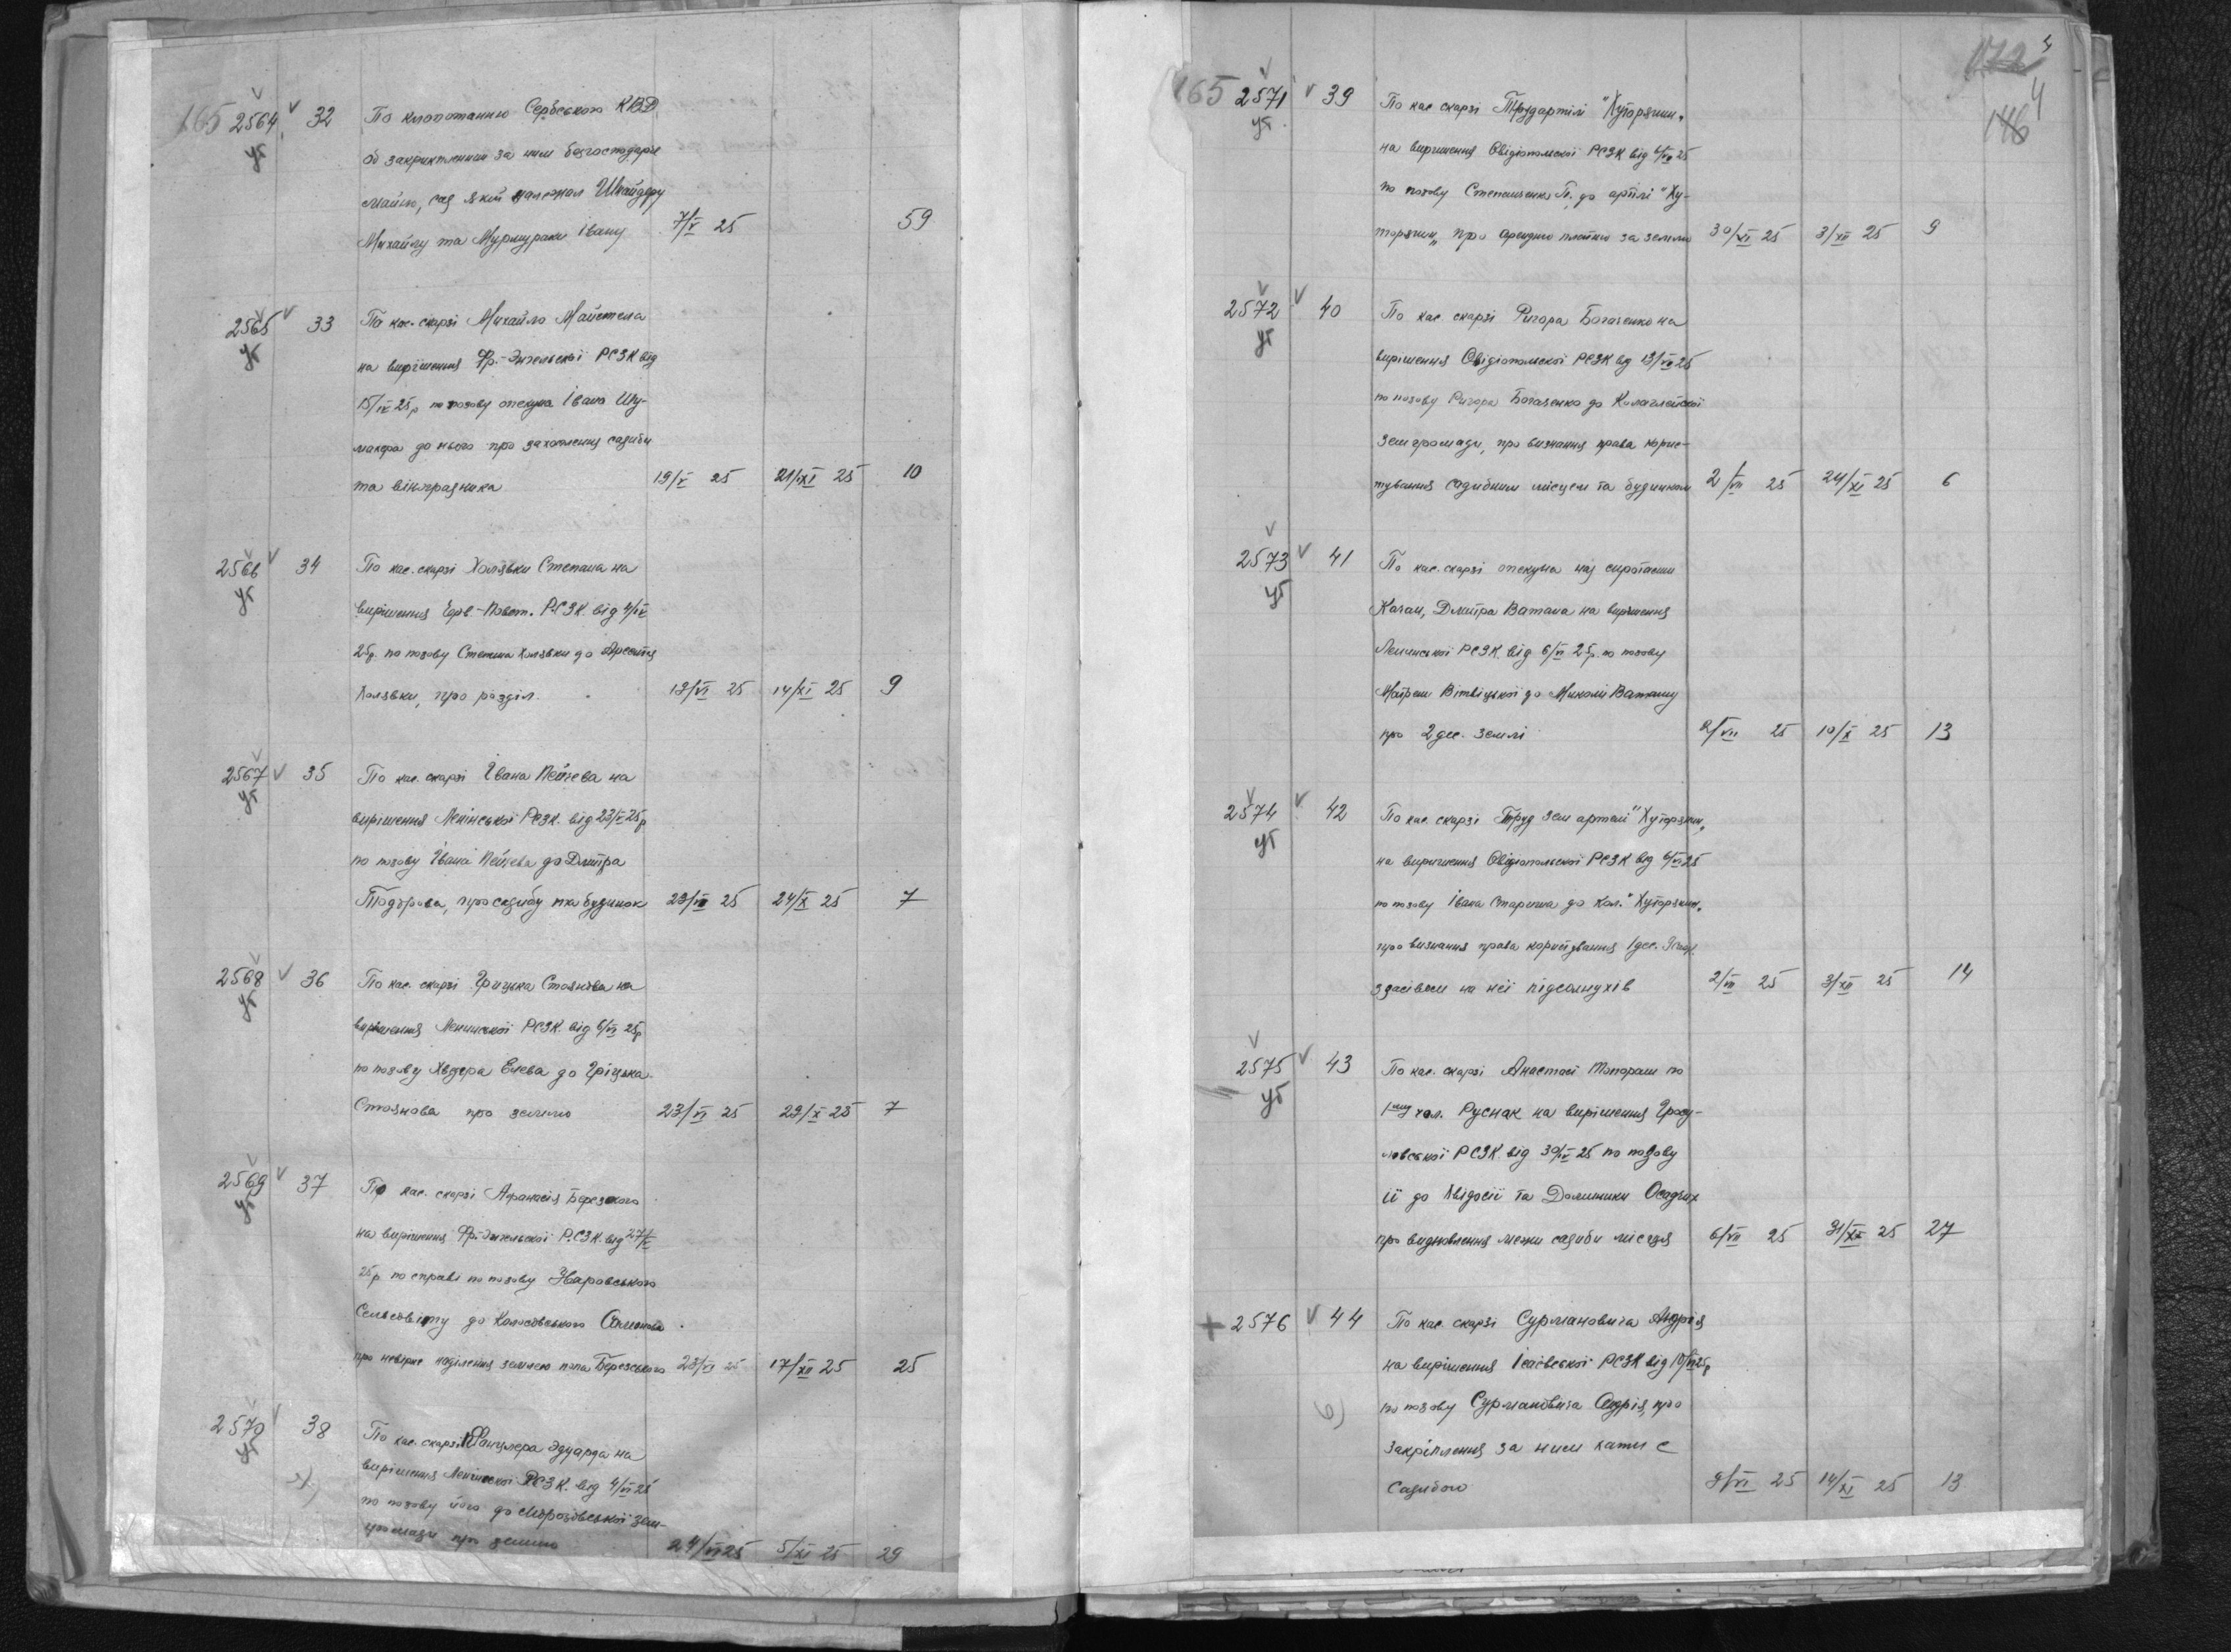 165 2564 32 По клопотанню Сербського КВД
уб об закріпленні за ним безгосподарн
майно, сад який належал Шнайдеру
Михайлу та Мурмураки Івану 7/V 25 59
2565 33 По кас. скарзі Михайло Майстела
уб на вирішення Фр.-Энгельскої РСЗК від
15/IV 25р по позову опекуна Івана Шу-
махера до нього про захоплення садиби
та виноградника 19/V 25 21/XI 25 10
2566 34 По кас. скарзі Холявки Степана на
уб вирішення РСЗК. від 4/IV
25р. по позову Степана Холявки до Арсентія
Холявки, про розділ. 13/VI 25 14/XI 25 9
2567 35 По кас. скарзі Івана Пейчева на
уб вирішення Ленінської РСЗК. від 23/V 25р
по позову Івана Пейчева до Дмитра
Тодорова, про садибу та будинок 23/VI 25 24/X 25 7
2568 36 По кас. скарзі Грицька Стоянова на
уб вирішення Ленинської РСЗК. від 6/VI 25р
по позову Хведера Елева до Гріцька
Стоянова про землю 23/VI 25 29/X 25 7
2569 37 По кас. скарзі Афанасія Березского
уб на вирішення Фр.-Энгельської РСЗК. від 27/V
25р по справі по позову Збаровського
Сельсовіту до Колосовського
про невірне наділення землею попа Березського 23/VI 25 17/XII 25 25
2570 38 По кас. скарзі Фанцлера Эдуарда на
уб вирішення Ленінської РСЗК. від 4/VI 25
по позову його до Морозовської зем-
громади про землю 24/VI 25 5/XI 25 29
172 4
146 4
165 2571 39 По кас скарзі Трудартілі "Хуторянин"
уб на вирішення Овідіопольскої РСЗК від 6/VI 25
по позову Степаненка П. до артілі "Ху-
торянин" про арендню платню за землю 30/VI 25 3/XII 25 9
2572 40 По кас. скарзі Ригора Богаченко на
уб вирішення Овідіопольскої РСЗК від 13/VI 25
по позову Ригора Богаченко до Калаглейскої
земгромади, про визнання права корис-
тування садибним місцем та будинком 2/VII 25 24/XI 25 6
2573 41 По кас. скарзі опекуна над сиротами
уб Качан, Дмитра Ватана на вирішення
Ленинської РСЗК. від 6/VI 25р. по позову
Вітвіцької до Миколи Ватану
про 2 дес. землі 2/VII 25 10/X 25 13
2574 42 По кас. скарзі Труд зем артелі "Хуторянин"
уб на вирішення Овідіопольської РСЗК від 6/VI 25
по позову Івана Стариша до кол. "Хуторянин"
про визнання права користування 1 дес.
здасівом на неї підсолнухів 2/VII 25 3/XII 25 14
2575 43 По кас. скарзі Анастасі Топораш по
уб 1му чол. Руснак на вирішення Гросу-
ловської РСЗК від 30/IV 25 по позову
ії до Явідосії та Долиники Осадчих
про видновлення межи садиби місця 6/VII 25 31/XII 25 27
+ 2576 44 По кас. скарзі Сурмановича Андрія
на вирішення Ісаєвської РСЗК від 10/VI 25р
по позову Сурмановича Андрія, про
закріплення за ним хати с
садибою 9/VI 25 14/XI 25 13